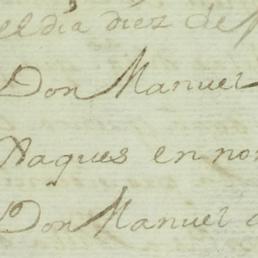 el dia diez de
Don Manuel
Naques en nom
Don Manuel a